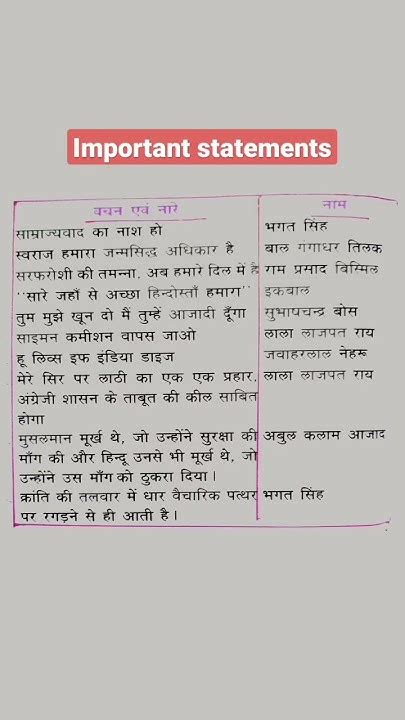 Important statements
बचन एवं नारे नाम
साम्राज्यवाद का नाश हो भगत सिंह
स्वराज हमारा जन्मसिद्ध अधिकार है बाल गगाधर तिलक
सरफरोशी की तमन्ना, अब हमारे दिल में है राम प्रसाद बिस्मिल
"सारे जहाँ से अच्छा हिन्दोस्ताँ हमारा" इकबाल
तुम मुझे खून दो मैं तुम्हें आजादी दूँगा सुभाषचन्द्र बोस
साइमन कमीशन वापस जाओ लाला लाजपत राय
हू लिव्स इफ इंडिया डाइज जवाहरलाल नेहरू
मेरे सिर पर लाठी का एक एक प्रहार, लाला लाजपत राय
अंग्रेजी शासन के ताबूत की कील साबित
होगा
मुसलमान मूर्ख थे, जो उन्होंने सुरक्षा की अबुल कलाम आजाद
माँग की और हिन्दू उनसे भी मूर्ख थे, जो
उन्होंने उस माँग को ठुकरा दिया।
क्रांति की तलवार में धार वैचारिक पत्थर भगत सिंह
पर रगड़ने से ही आती है।